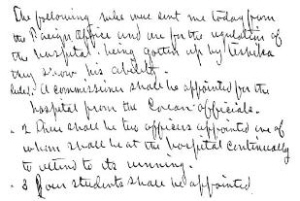 The following rules were sent me today from
the Foreign Office and are for the regulation of
the hospital: being gotten up by
they show his ability.
Rule 1. A commissioner shall be appointed for the
hospital from the Corean officials.
. 2 There shall be two officers appointed one of
whom shall be at the hospital continually
to attend to its running.
. 3 Four students shall be appointed